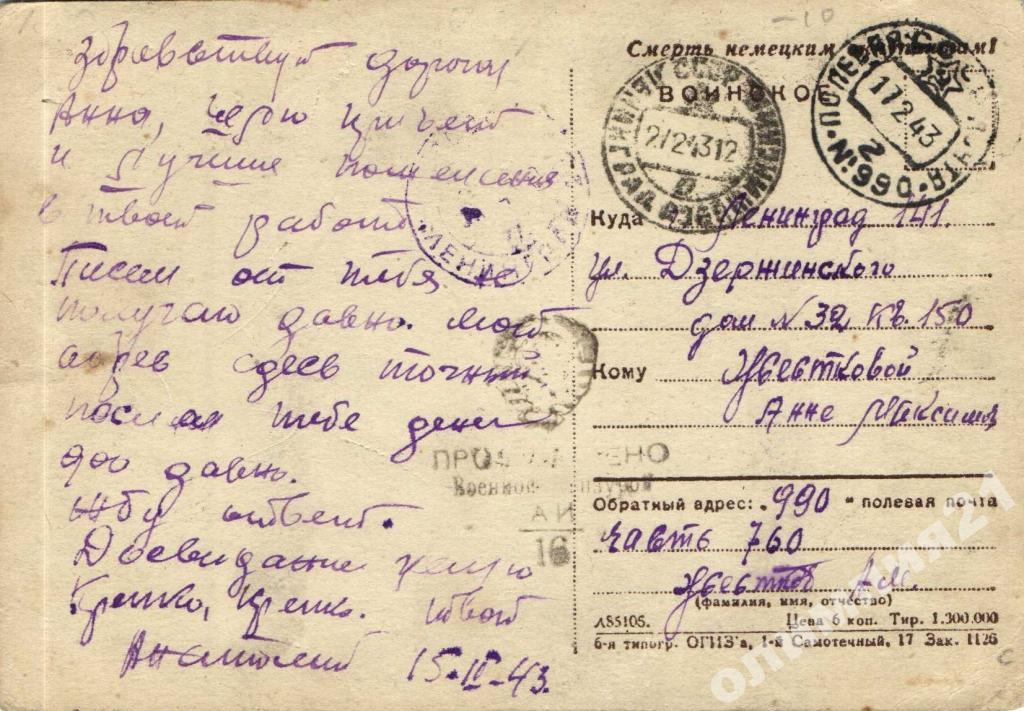 Здравствуй дорогая
Анна, черю привет
и лучшие пожелания
в твоей работе
Писем от тебя не
получаю давно. мой
адрес здесь точный
послал тебе денег
900 давно.
Жду ответ.
Досвидание целую
Крепко, крепко. твой
Анатолий 15.II-43.
Смерть немецким
ВОИНСКОЕ
ПОЛЕВАЯ
17 2 43
№ 990
2/2 43 12
Куда Ленинград 141.
ул. Дзержинского
дом № 32 кв. 150
Кому
Анне Максимов
ПРО ЕНО
Военной
16
Обратный адрес: 990 - полевая почта
часть 760
А.М.
(фамилия, имя, отчество)
А85105. Цена 6 коп. Тир. 1.300.000
6-я типогр. ОГИЗ'а, 1-й Самотечный, 17 Зак. 1126
олимпия21